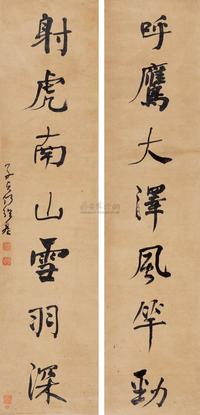 呼鷹大澤風勁
射虎南山雪羽深
子貞何紹基